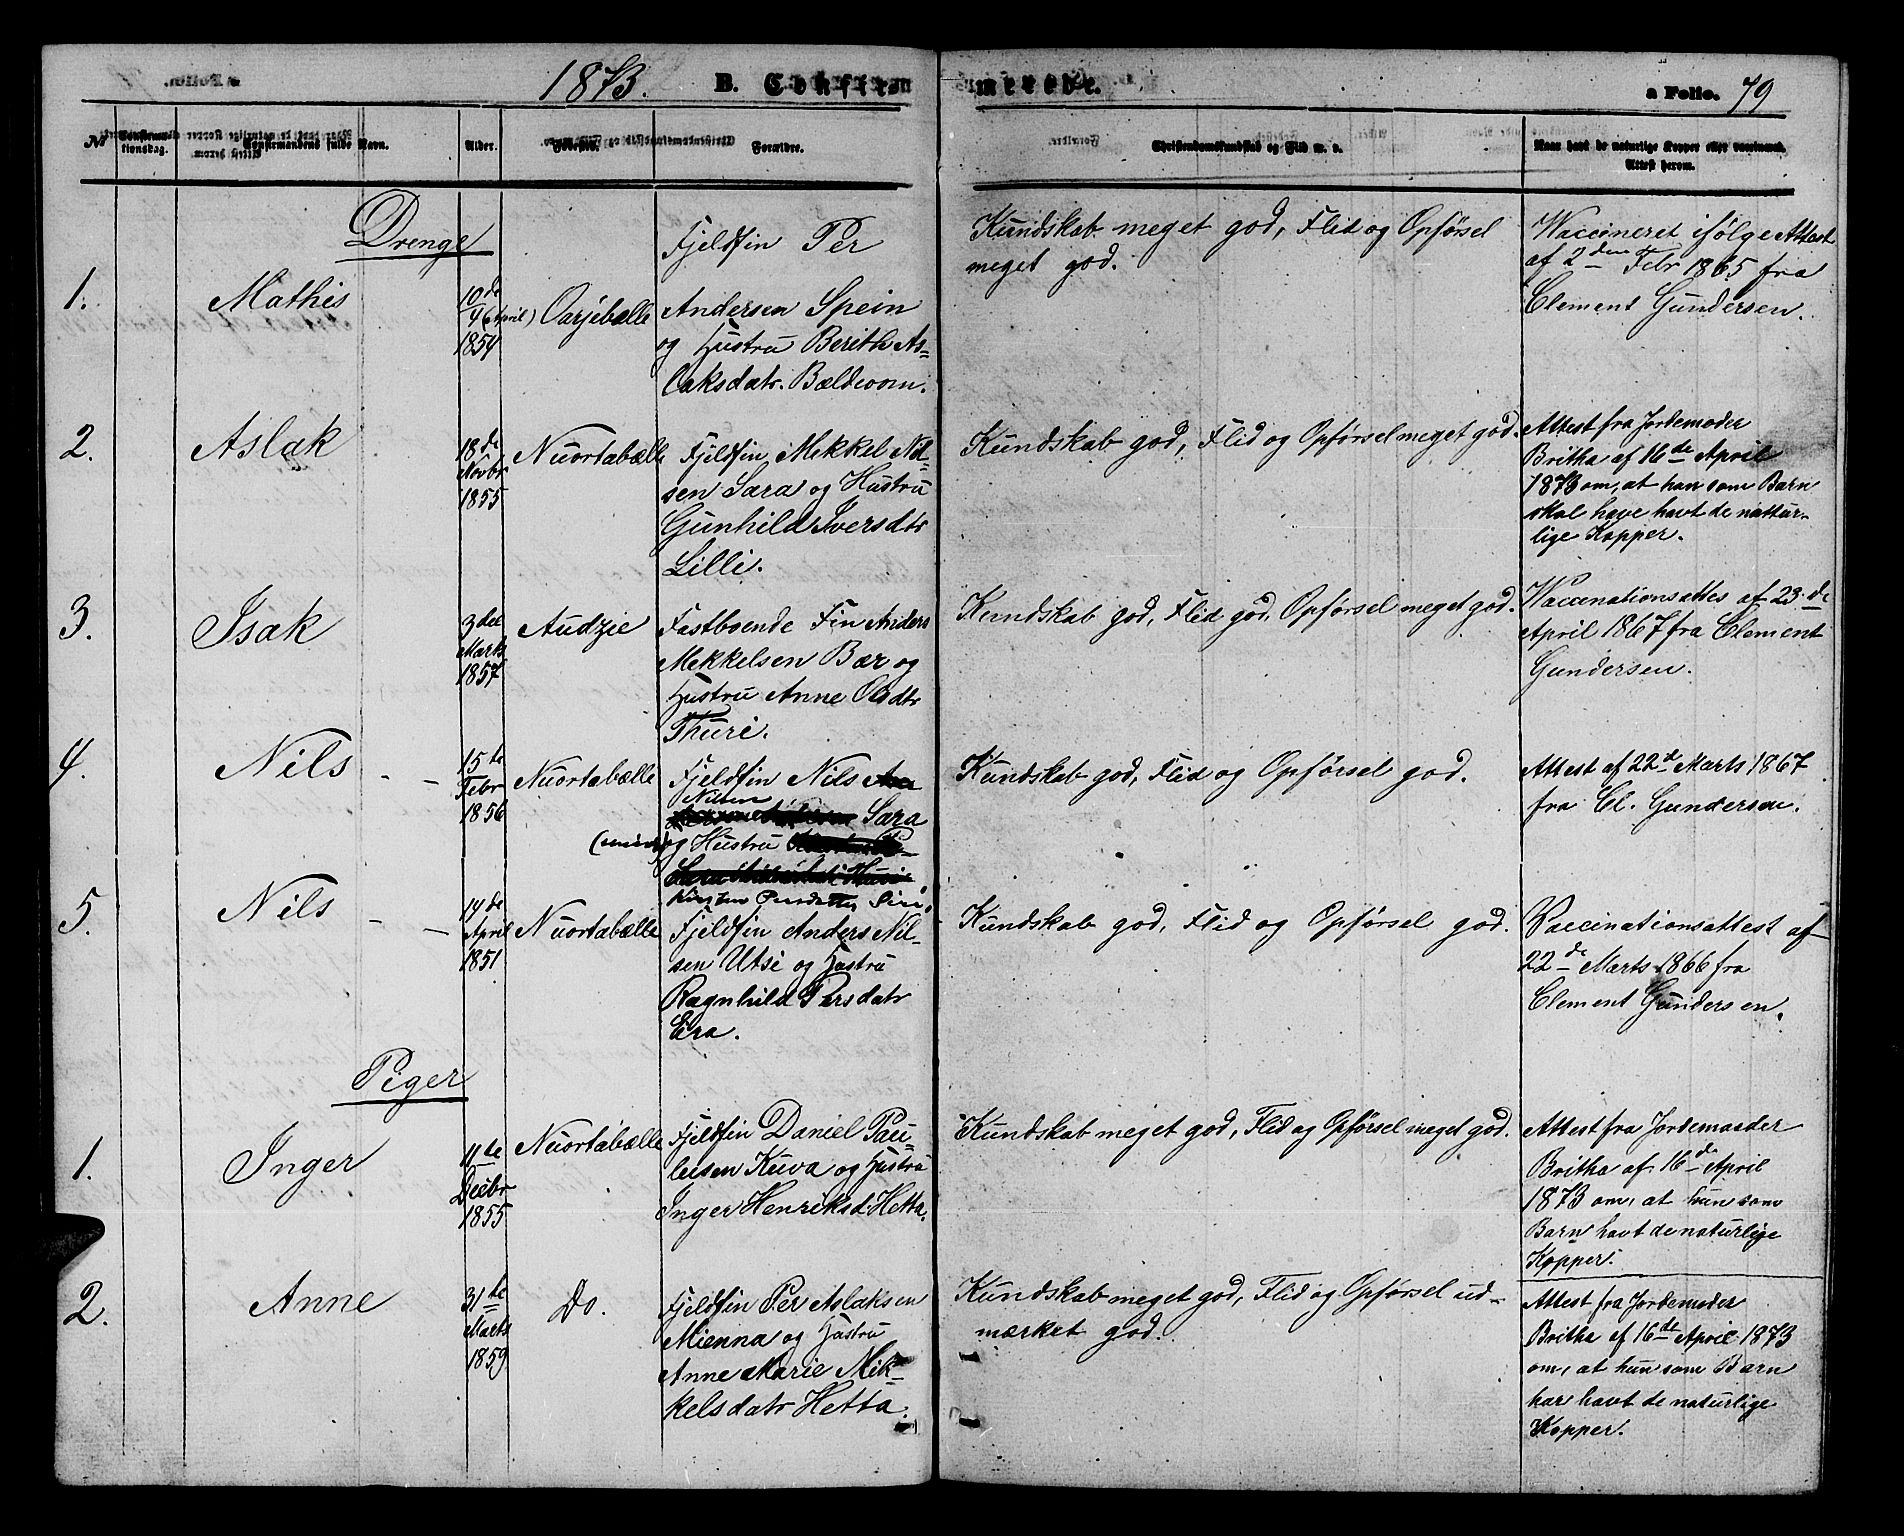 1873. B. Confirmerede. a Folio. 79
No Confirmationsdag. Confirmandens fulde Navn. Alder. Forældre. Christendomskundskab og Flid m. v. Naar havt de naturlige Kopper eller vaccineret.
Attest herom.
Drenge
1. Mathis
10de
4 (April)
1854
Oarjebælle
Fjeldfin Per
Andersen Spein
og Hustru Berith As=
laksdatr. Bældevom.
Kundskab meget god, Flid og Opførsel
meget god.
Vaccineret ifølge Attest
af 2den Febr 1865 fra
Clement Gundersen.
2. Aslak
18de
Novbr
1855
Nuortabælle
Fjeldfin Mekkel Nil=
sen Sara og Hustru
Gunhild Iversdtr
Lilli.
Kundskab god, Flid og Opførsel meget god.
Attest fra Jordemoder
Britha af 16de April
1873 om, at han som Barn
skal have havt de nattur-
lige Kopper.
3. Isak
3die
Marts
1857
Audzie
Fastboende Fin Anders
Mekkelsen Bær og
Hustru Anne Olsdtr
Thuri.
Kundskab god, Flid god, Opførsel meget god.
Vaccinationsattes af 23de
April 1867 fra Clement
Gundersen.
4. Nils - -
15te
Febr
1856
Nuortabælle
Fjeldfin Nils
Nilsen
Sara
og Hustru
Kirsten Persdatter Siri.
Kundskab god, Flid og Opførsel god.
Attest af 22de Marts 1867
fra Cl. Gundersen.
5. Nils - -
14de
April
1851
Nuortabælle
Fjeldfin Anders Nil-
sen Utsi og Hustru
Ragnhild Persdatr
Era.
Kundskab god, Flid og Opførsel god.
Vaccinationsattest af
22de Marts 1866 fra
Clement Gundersen.
Piger
1. Inger
11te
Decbr
1855
Nuortabælle
Fjeldfin Daniel Pau-
lsen Kuva og Hustru
Inger Henriksd. Hetta.
Kundskab meget god, Flid og Opførsel meget god.
Attest fra Jordemoeder
Britha af 16de April
1873 om, at hun som
Barn havt de naturlige
Kopper.
2. Anne
31te
Marts
1859
Do.
Fjeldfin Per Aslaksen
Mienna og Hustru
Anne Marie Mik-
kelsdatr Hetta.
Kundskab meget god, Flid og Opførsel ud-
mærket god.
Attest fra Jordemoder
Britha af 16de April 1873
om, at hun som Barn
har havt de naturlige
Kopper.